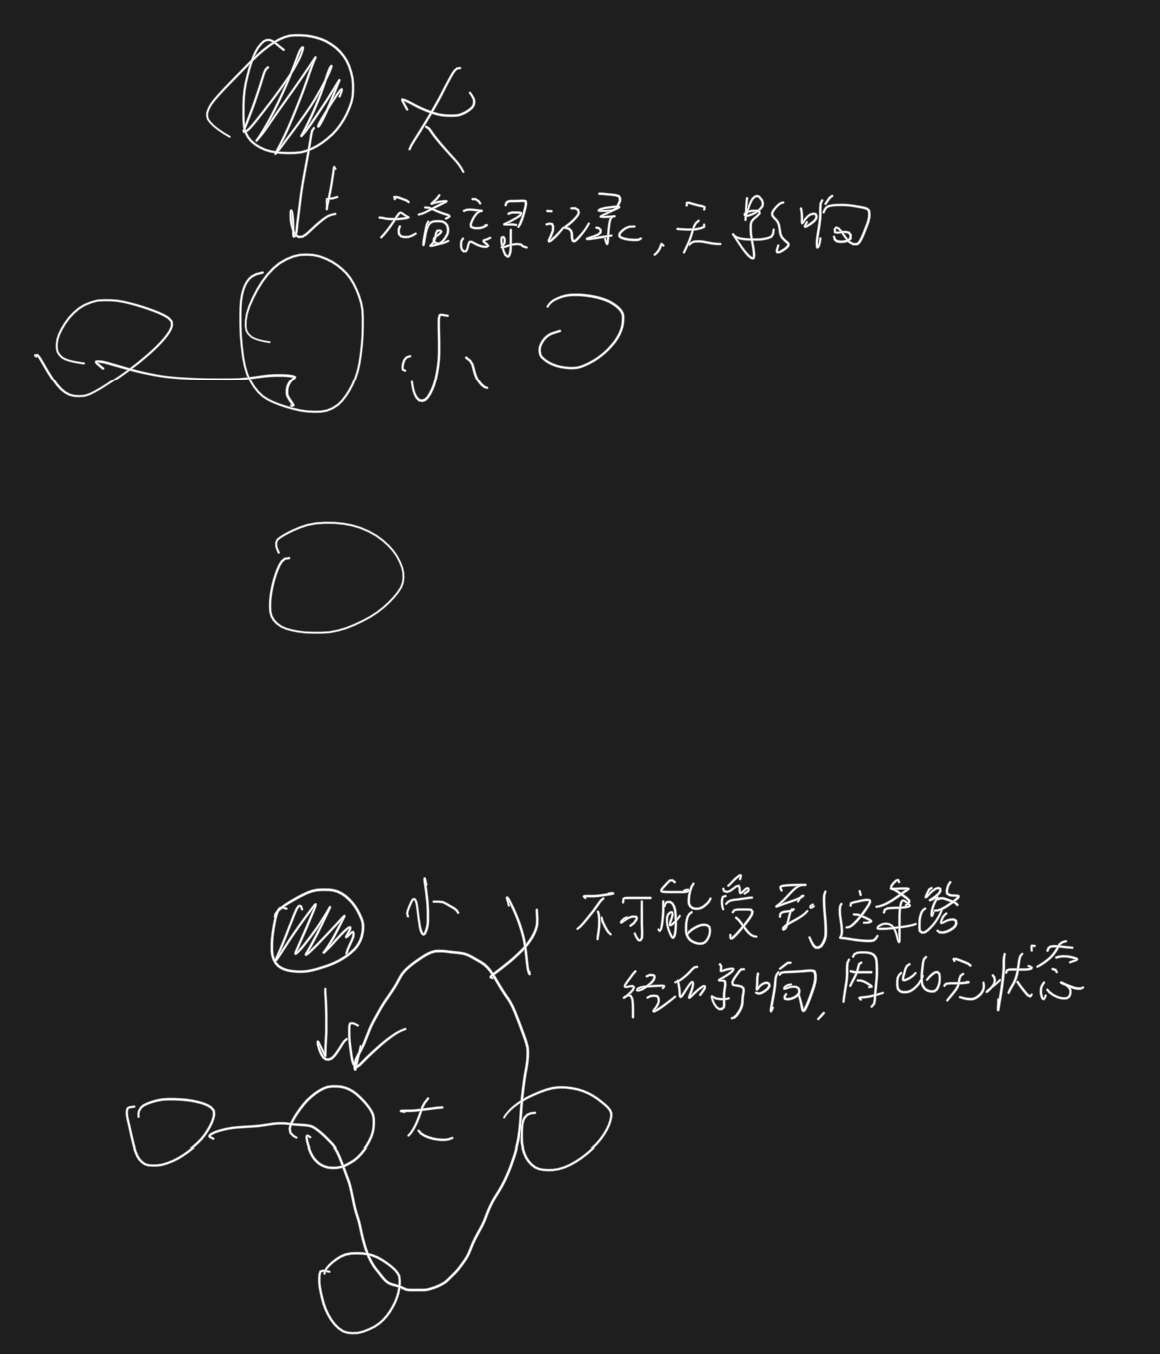 大
无备忘录记录,无影响
小
小
不可能受到这条路
径的影响,因此无状态
大